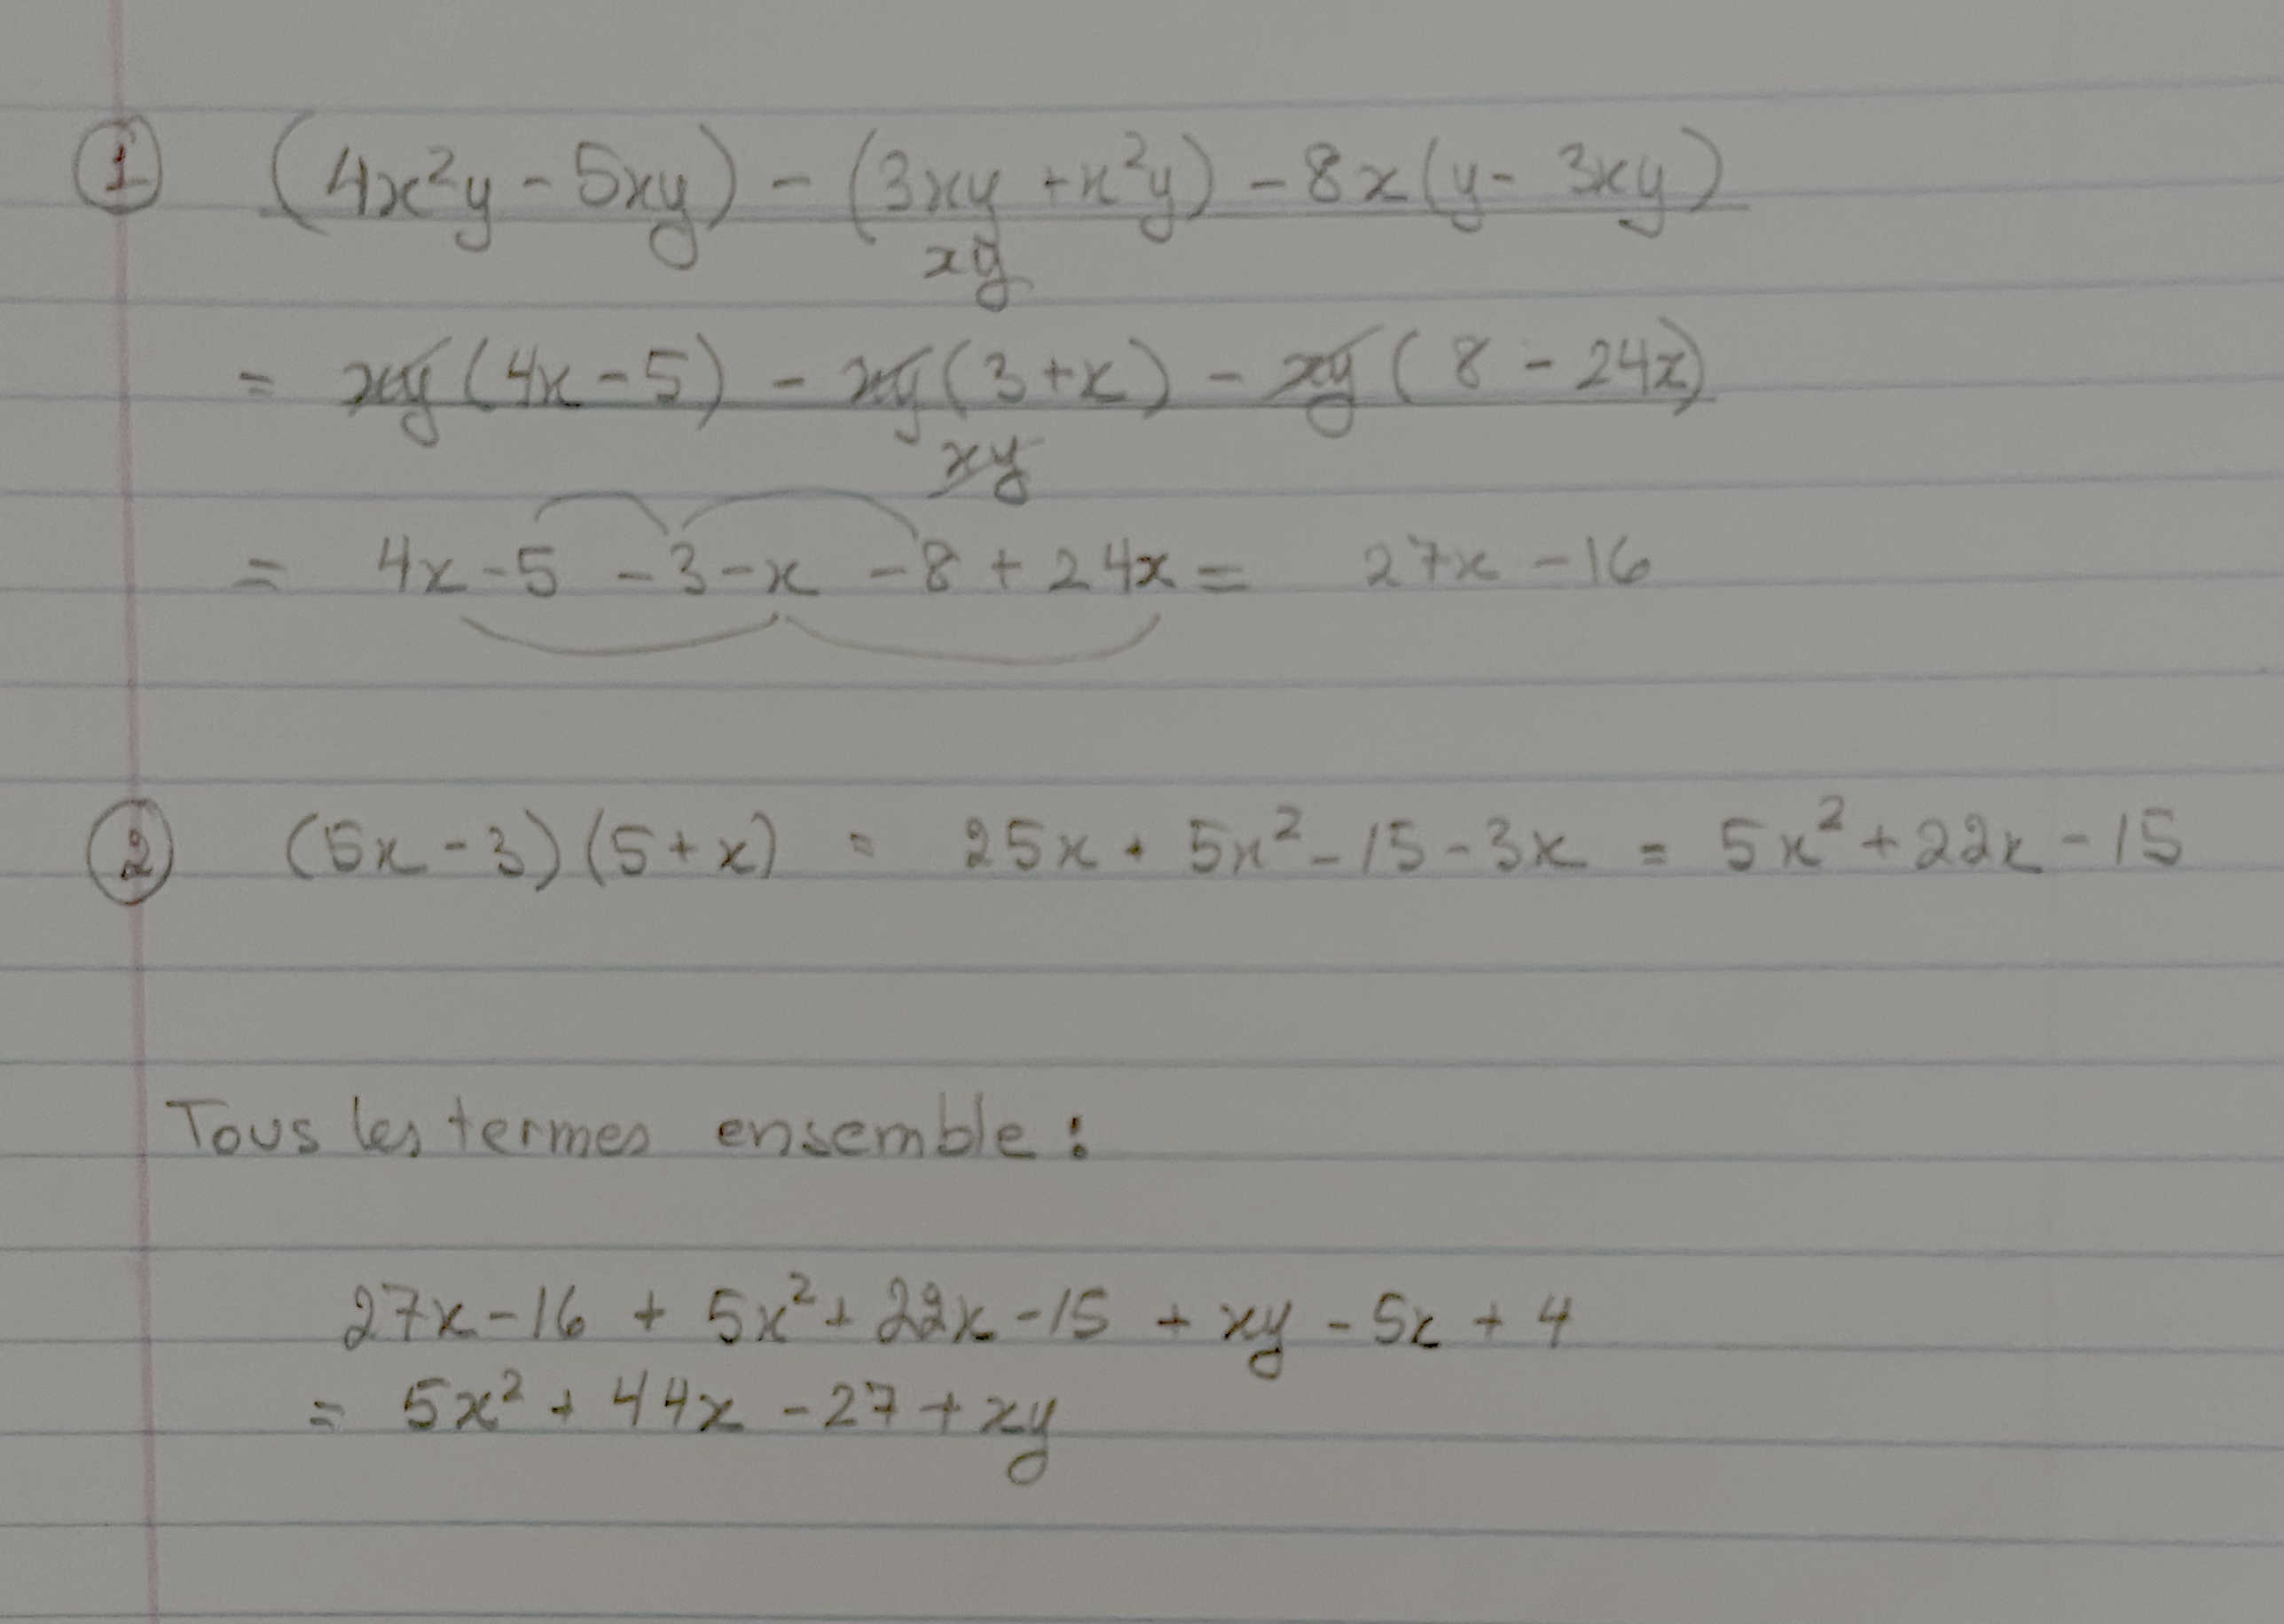 ① (4x²y - 5xy) - (3xy + x²y) - 8x(y - 3xy)
xy
= xy(4x - 5) - xy(3 + x) - xy(8 - 24x)
xy
= 4x - 5 - 3 - x - 8 + 24x = 27x - 16
② (5x - 3)(5 + x) = 25x + 5x² - 15 - 3x = 5x² + 22x - 15
Tous les termes ensemble :
27x - 16 + 5x² + 22x - 15 + xy - 5x + 4
= 5x² + 44x - 27 + xy